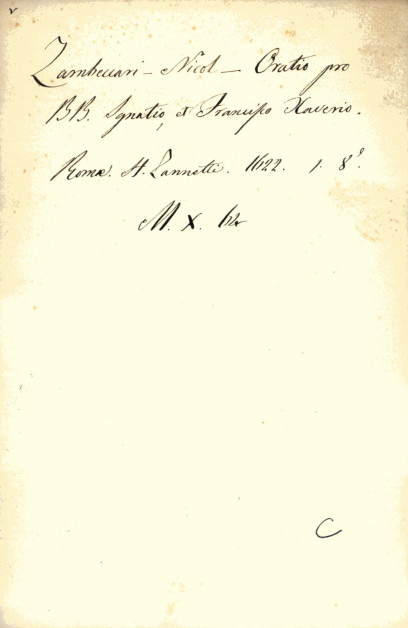 Zambeccari - Nicol - Oratio pro
BB. Ignatio, et Francisco Xaverio.
Romæ. H. Zannetti. 1622. 1. 8°.
M. X. 64
C